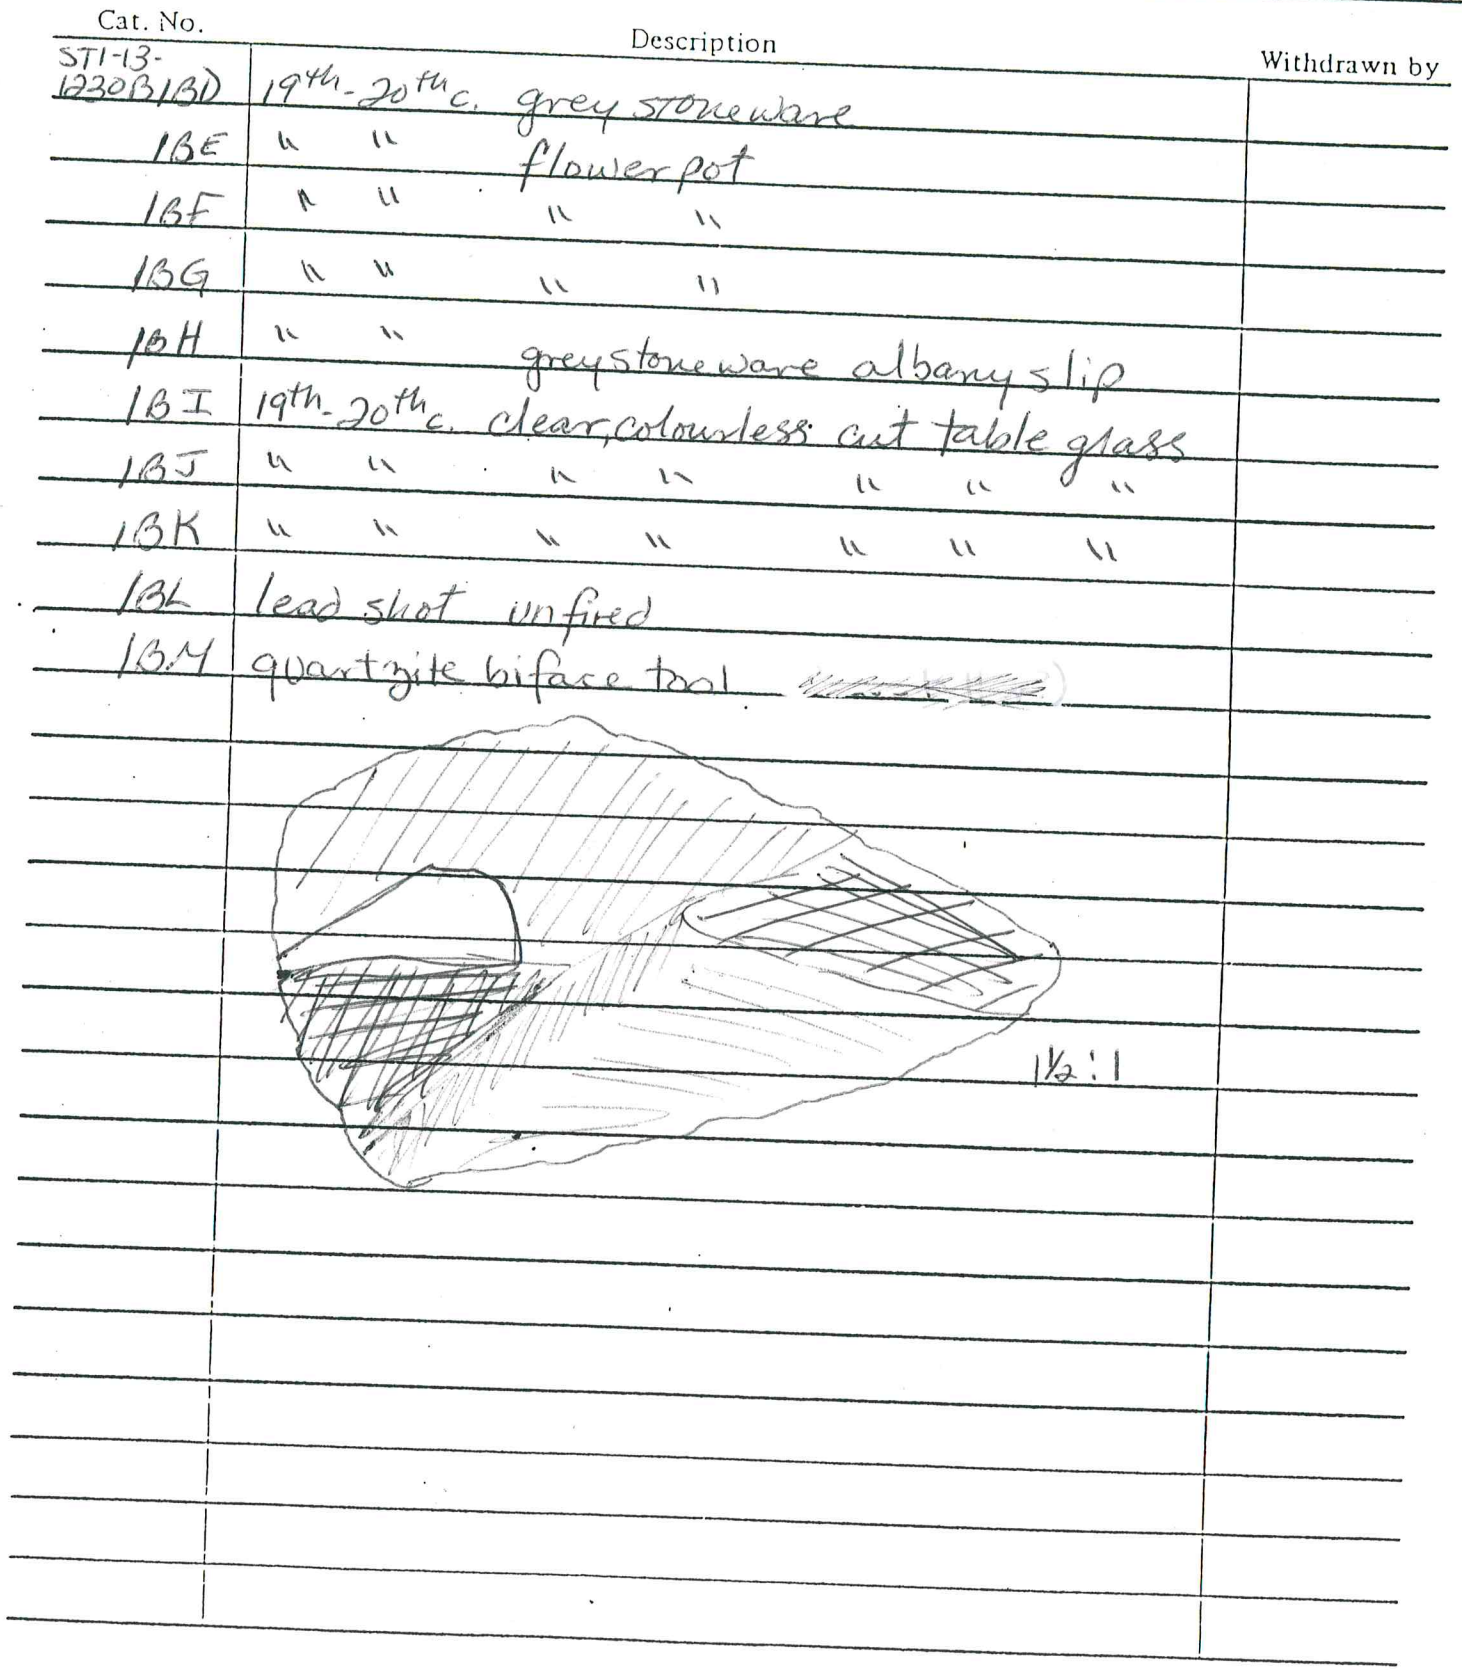 Cat. No. Description Withdrawn by
ST1-13-
1230B1BD 19th-20th c. grey stoneware
1BE " " flower pot
1BF " " " "
1BG " " " "
1BH " " grey stoneware albany slip
1BI 19th-20th c. clear, colourless cut table glass
1BJ " " " " " " "
1BK " " " " " " "
1BL lead shot unfired
1BM quartzite biface tool
1½:1